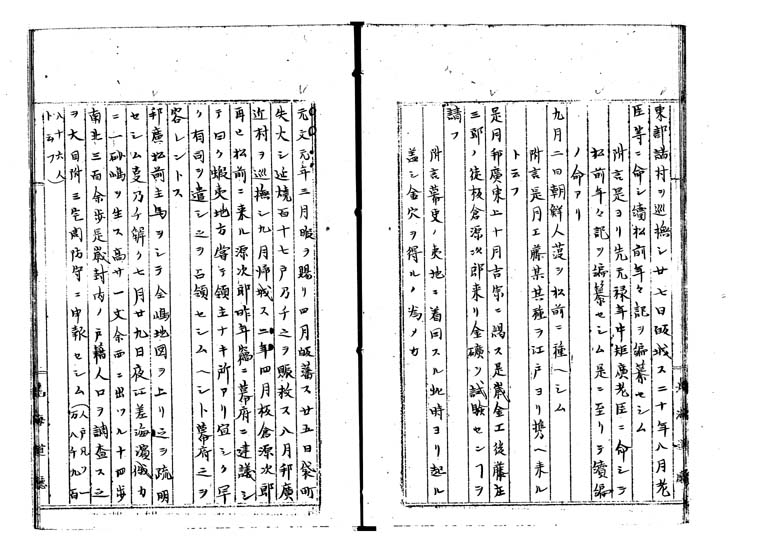 東部諸村ヲ巡撫シ廿七日皈城ス二十年八月老
臣等ニ命シ續松前年々記ヲ編纂セシム
附言是ヨリ先元禄年中矩廣老臣ニ命シテ
松前年々記ヲ編纂セシム是ニ至リテ續編
ノ命アリ
九月二日朝鮮人葠ヲ松前ニ種ヘシム
附言是月工藤某其種ヲ江戸ヨリ携ヘ来ル
ト云フ
是月邦廣東上十月吉宗ニ謁ス是歳金工後藤庄
三郎ノ徒板倉源次郎来リ金礦ヲ試験センフヲ
請フ
附言幕吏ノ夷地ニ着目スル此時ヨリ起ル
蓋シ金穴ヲ得ルノ為メカ
元文元年三月暇ヲ賜リ四月皈藩ス廿五日袋町
失火シ延燒百十七戸乃チ之ヲ賑救ス八月邦廣
近村ヲ巡撫シ九月帰城ス二年四月板倉源次郎
再ヒ松前ニ来ル源次郎昨年竊ニ幕府ニ建議シ
テ曰ク蝦夷地方當ニ領主ナキ所アリ宜シク早
ク有司ヲ遣シ之ヲ占領セシムヘシト幕府之ヲ
容レントス
邦廣松前主馬ヲシテ全嶋地図ヲ上リ之ヲ疏明
セシム事乃チ解ク七月廿九日夜江差海濱俄カ
ニ一砂嶋ヲ生ス高サ一丈余面ニ出ツル十四歩
南北三百余歩是歳封内ノ戸籍人口ヲ調査ス之
ヲ大目附三宅周防守ニ申報セシム
八十六人
ト云フ